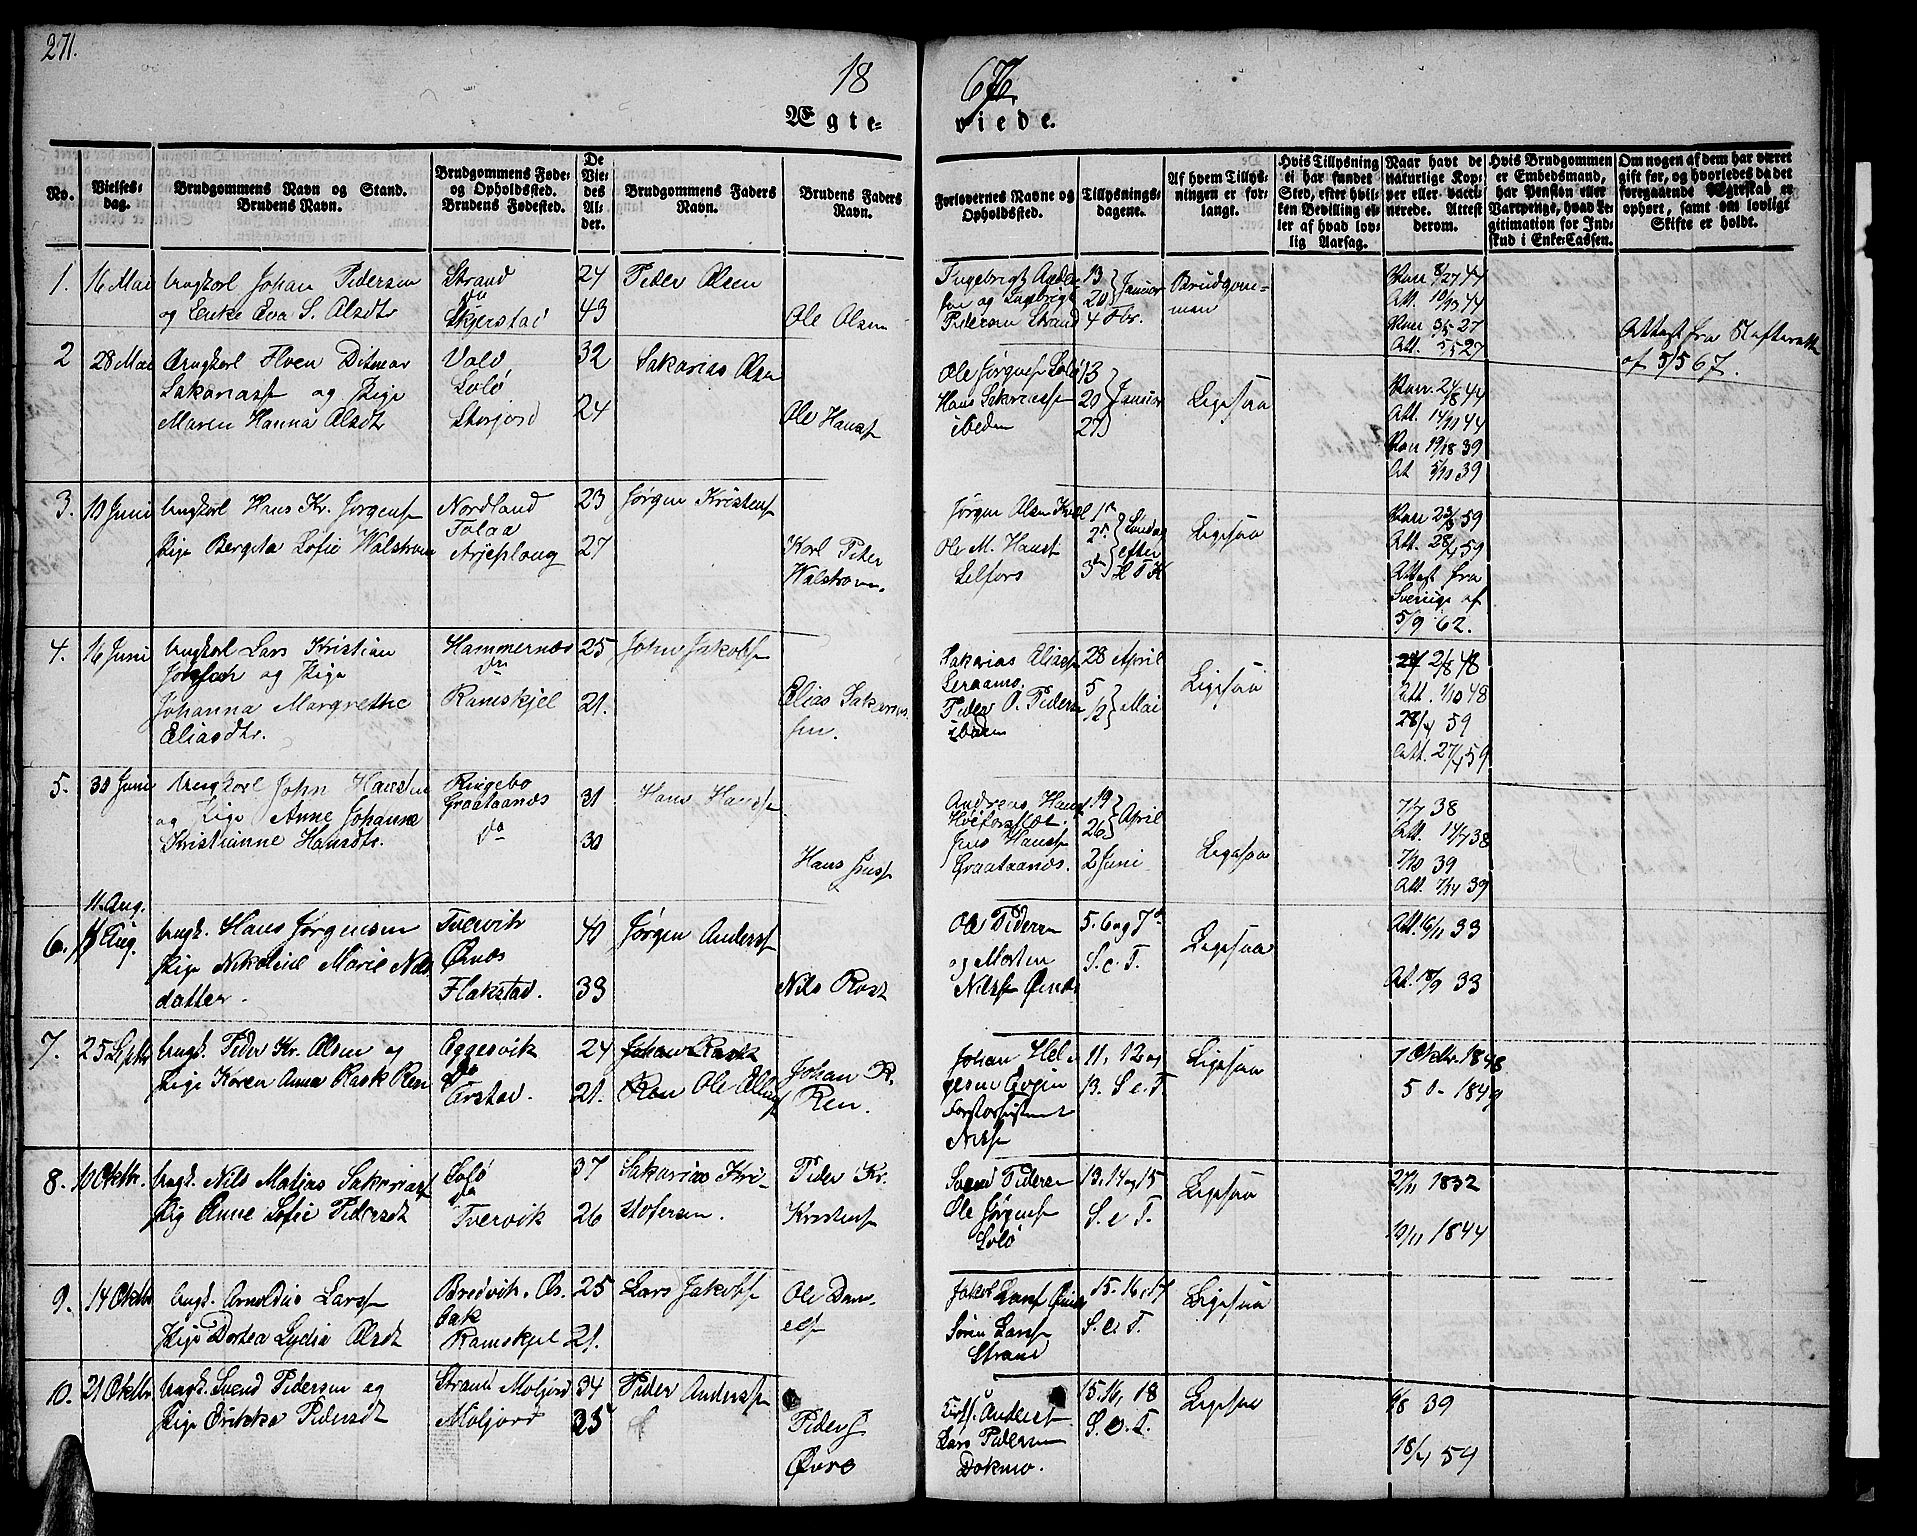 271.
18
67
Ægte-
viede.
No.
Vielses-
dag.
Brudgommens Navn og Stand.
Brudens Navn.
Brudgommens Føde-
og Opholdssted.
Brudens Fødested.
De
Vie-
des
Al-
der.
Brudgommens Faders
Navn.
Brudens Faders
Navn.
Forlovernes Navne og
Opholdssted.
Tillysnings-
dagene.
Af hvem Tillys-
ningen er for-
langt.
Hvis Tillysning
ei har fundet
Sted, efter hvil-
ken Bevilling el-
ler af hvad lov-
lig Aarsag.
Naar havt de
naturlige Kop-
per eller vacci-
nerede. Attest
derom.
Hvis Brudgommen
er Embedsmand,
har Pension eller
Vartpenge, hvad Le-
gitimation for Ind-
skud i Enke-Cassen.
Om nogen af dem har været
gift før, og hvorledes da det
foregaaende Ægteskab er
ophørt, samt om lovligt
Skifte er holdt.
1.
16 Mai
Ungkarl Johan Pedersen
og Enke Eva S. Olsdtr
Strand
do
Skjerstad
24
43
Peder Olsen
Ole Olsen
Ingebrigt
og Ingebrigt
Pedersen Strand
13
20 } Januar
4 Fbr.
Brudgom-
men
Vacc 8/27 44
Att. 10/ 44
Vacc 3/5 27
Att. 5/5 27
Attest fra Skifteretten
af 3/5 67.
2
28 Mai
Ungkarl Ditmar
Sakariass og Pige
Maren Hanna Olsdtr
Vald
Solø
Storjord
32
24
Sakarias Olsen
Ole Hanss
Ole Jørgens Solø
Hans Sakariass
ibidem
13
20 } Januar
27
Ligesaa
Vacc. 24/8 44
Att. 14/10 44
Vacc 19/8 39
Att 5/10 39
3.
10 Juni
Ungkarl Hans Kr. Jørgens
Pige Bergeta Sofie Walstrøm
Nordland
Tolaa
Arjeploug
23
27
Jørgen Kristens
Karl Peter
Walstrøm.
Jørgen Olsen
Ole M. Hanss
Selfors
1ste
2den } Søndag
efter
3die H T K
Ligesaa
Vacc 23/ 59
Att. 28/ 59
Attest fra
Sverige af
5/9 62.
4.
16 Juni
Ungkarl Lars Kristian
og Pige
Johanna Margrethe
Eliasdtr.
Hammernæs
do
Ramskjel
25
21.
John Jakobs
Elias Sakarias-
sen.
Sakarias Eliass
Leraamo.
Peder O. Peders
ibidem
28 April
5
12 } Mai
Ligesaa
2/8 48
Att. 1/10 48
28/4 59
Att. 27/4 59
5.
30 Juni
Ungkarl John Hansen
og Pige Anne Johanne
Kristianne Hansdtr.
Ringebo
Graataanæs
do
31
30
Hans Hanss
Hans Jenss
Andreas Hanss
Jens Hanss
Graataanæs
19
26 } April
2 Juni
Ligesaa
7/7 38
Att. 14/7 38
7/10 39
Att. 7/ 39
6.
11. Aug.
11 Aug.
Ungk. Hans Jørgensen
Pige Nikoline Marie Nils-
datter.
Tvervik
Øinæs
Flakstad.
40
33
Jørgen Anders
Nils Rost
Ole Pedersen
og Morten
Nilss Øinæs
5. 6 og 7de
S. e. T.
Ligesaa
Att. 16/11 33
At. 18/9 33
7.
25 Septbr
Ungk. Peder Kr. Olsen og
Pige Karen Anna Rask Ren
Eggesvik
do
Ørstad.
24
21.
Johan Rask
Ren Ole Ellings
Johan R.
Ren.
Johan Hel-
gesen
Nilss
11, 12 og
13. S e T.
Ligesaa
7 Oktbr. 1848
5 O- 1849
8.
10 Oktbr.
Ungk. Nils Matias Sakariass
Pig Anne Sofie Pedersdt
Solø
do
Tvervik
37
26
Sakarias Kri-
stofersen.
Peder Kr.
Kristens
Svend Pedersen
Ole Jørgens
Solø
13, 14 og 15
S. e T.
Ligesaa
27/11 1832
19/11 1844
9.
14 Oktbr
Ungk. Arnoldus Larss
Pige Dortea Lydia Olsdt
Bredvik. Øs-
bak
Ramskjel
25
21.
Lars Jakobs
Ole Dani-
els
Jakob Larss Øinæs
Søren Larss
Strand
15. 16, 17
S. e. T.
Ligesaa
10.
21 Oktbr
Ungk. Svend Pedersen og
Pige Erikka Pedersdt
Strand Moljord
Moljord
34
35
Peder Anders
Peder J
Øvre
Anders
Lars Pedersen
Dokmo.
15. 16, 18
S. e. T.
Ligesaa
6/8 39
18/4 54